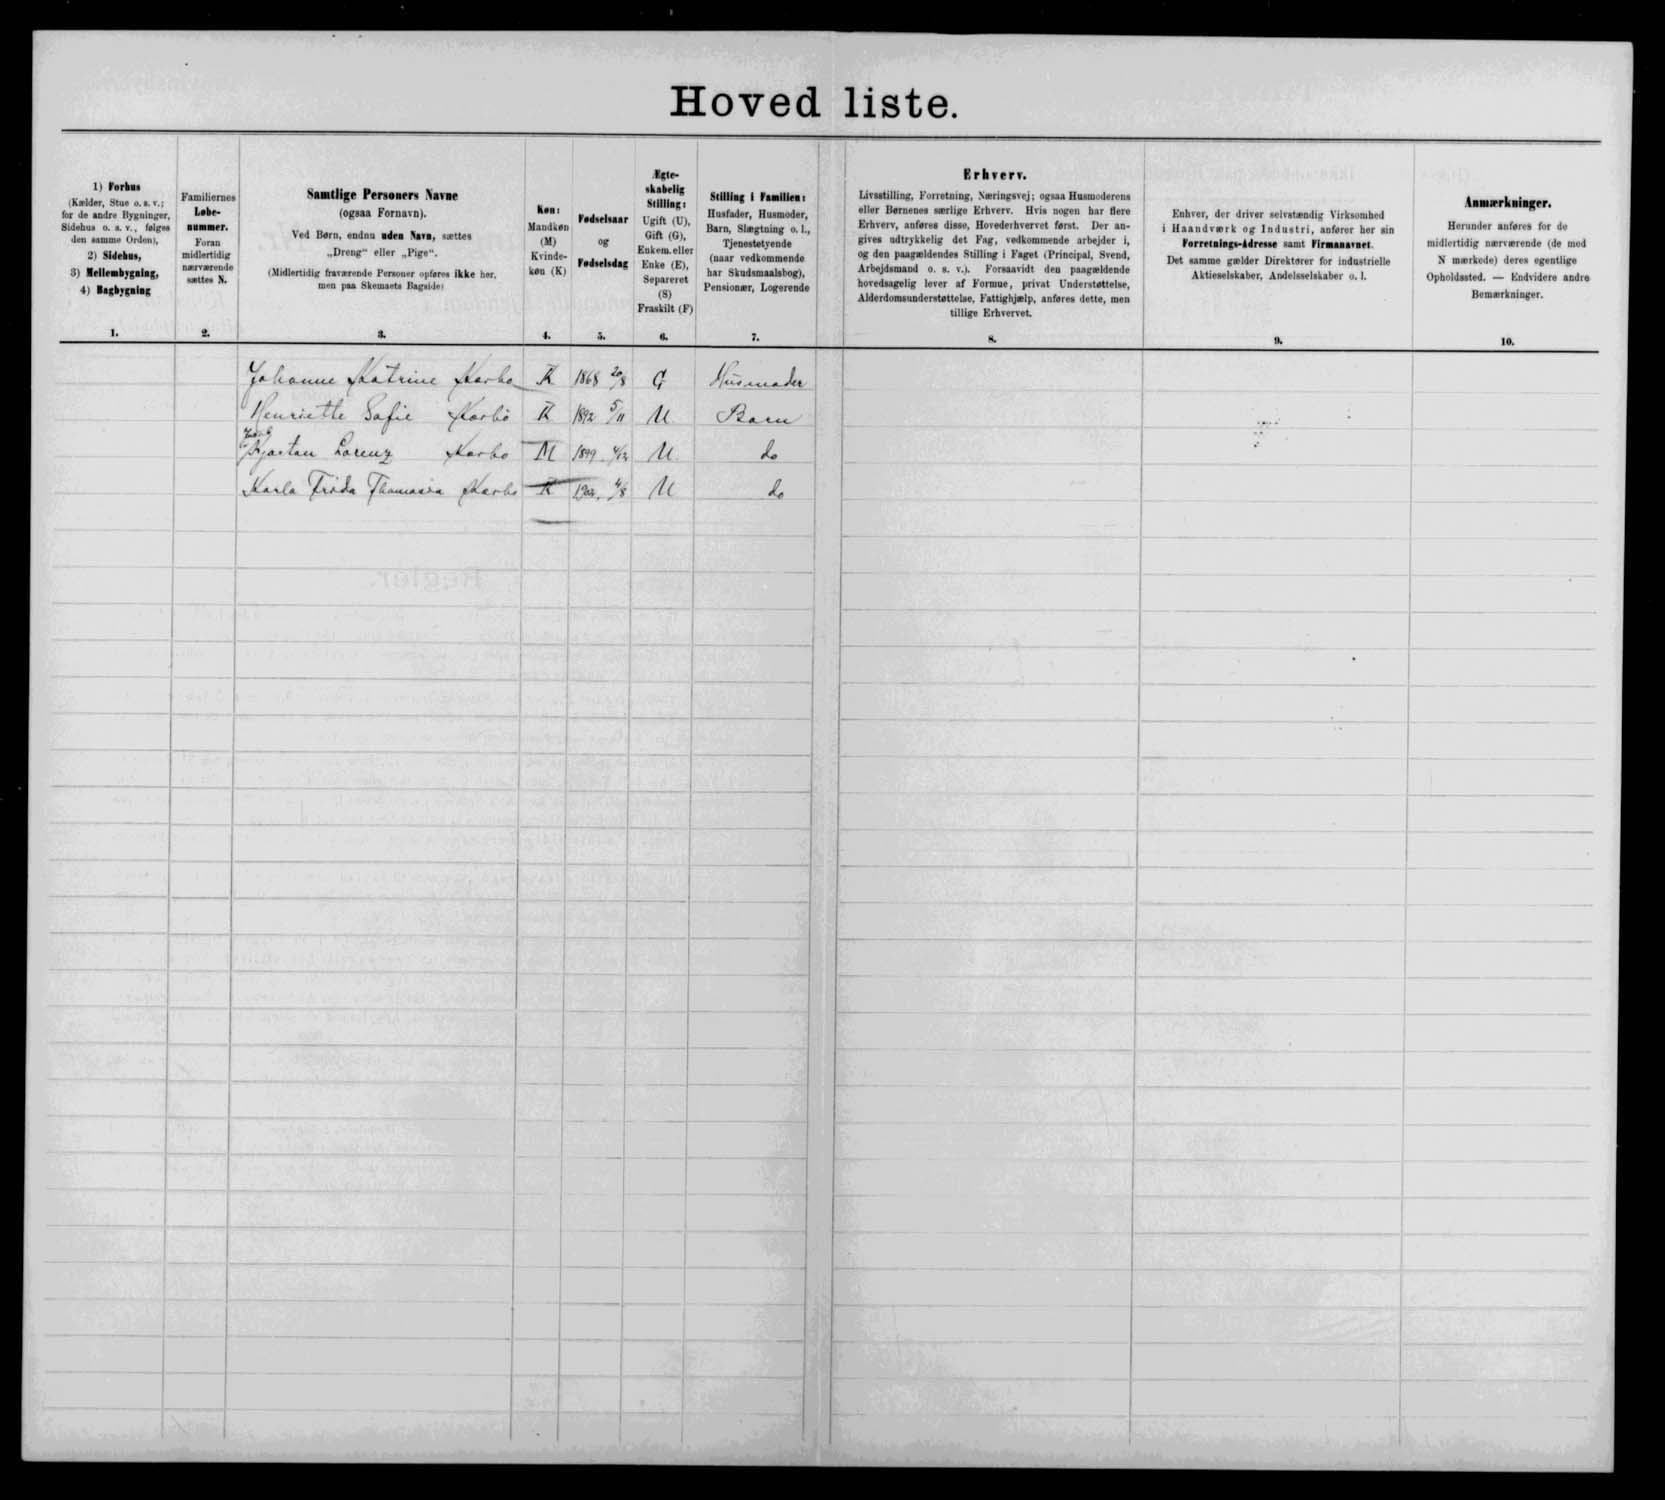 Hoved liste.
1) Forhus
(Kælder, Stue o. s. v.;
for de andre Bygninger,
Sidehus o. s. v., følges
den samme Orden),
2) Sidehus,
3) Mellembygning,
4) Bagbygning
1.
Familiernes
Løbe-
nummer.
Foran
midlertidig
nærværende
sættes N.
2.
Samtlige Personers Navne
(ogsaa Fornavn).
Ved Børn, endnu uden Navn, sættes
„Dreng“ eller „Pige“.
(Midlertidig fraværende Personer opføres ikke her,
men paa Skemaets Bagside)
3.
Køn:
Mandkøn
(M)
Kvinde-
køn (K)
4.
Fødselsaar
og
Fødselsdag
5.
Ægte-
skabelig
Stilling:
Ugift (U),
Gift (G),
Enkem. eller
Enke (E),
Separeret
(S)
Fraskilt (F)
6.
Stilling i Familien:
Husfader, Husmoder,
Barn, Slægtning o. l.,
Tjenestetyende
(naar vedkommende
har Skudsmaalsbog),
Pensionær, Logerende
7.
Erhverv.
Livsstilling, Forretning, Næringsvej; ogsaa Husmoderens
eller Børnenes særlige Erhverv. Hvis nogen har flere
Erhverv, anføres disse, Hovederhvervet først. Der an-
gives udtrykkelig det Fag, vedkommende arbejder i,
og den paagældendes Stilling i Faget (Principal, Svend,
Arbejdsmand o. s. v.). Forsaavidt den paagældende
hovedsagelig lever af Formue, privat Understøttelse,
Alderdomsunderstøttelse, Fattighjælp, anføres dette, men
tillige Erhvervet.
8.
Enhver, der driver selvstændig Virksomhed
i Haandværk og Industri, anfører her sin
Forretnings-Adresse samt Firmanavnet.
Det samme gælder Direktører for industrielle
Aktieselskaber, Andelsselskaber o. l.
9.
Anmærkninger.
Herunder anføres for de
midlertidig nærværende (de med
N mærkede) deres egentlige
Opholdssted. — Endvidere andre
Bemærkninger.
10.
Johanne Katrine Karbo K 1868 20/8 G Husmoder
Henriette Sofie Karbo K 1892 5/11 U Barn
Kjartan Lorenz Karbo M 1899 4/12 U do
Karla Frida Thomasia Karbo K 1902 4/8 U do